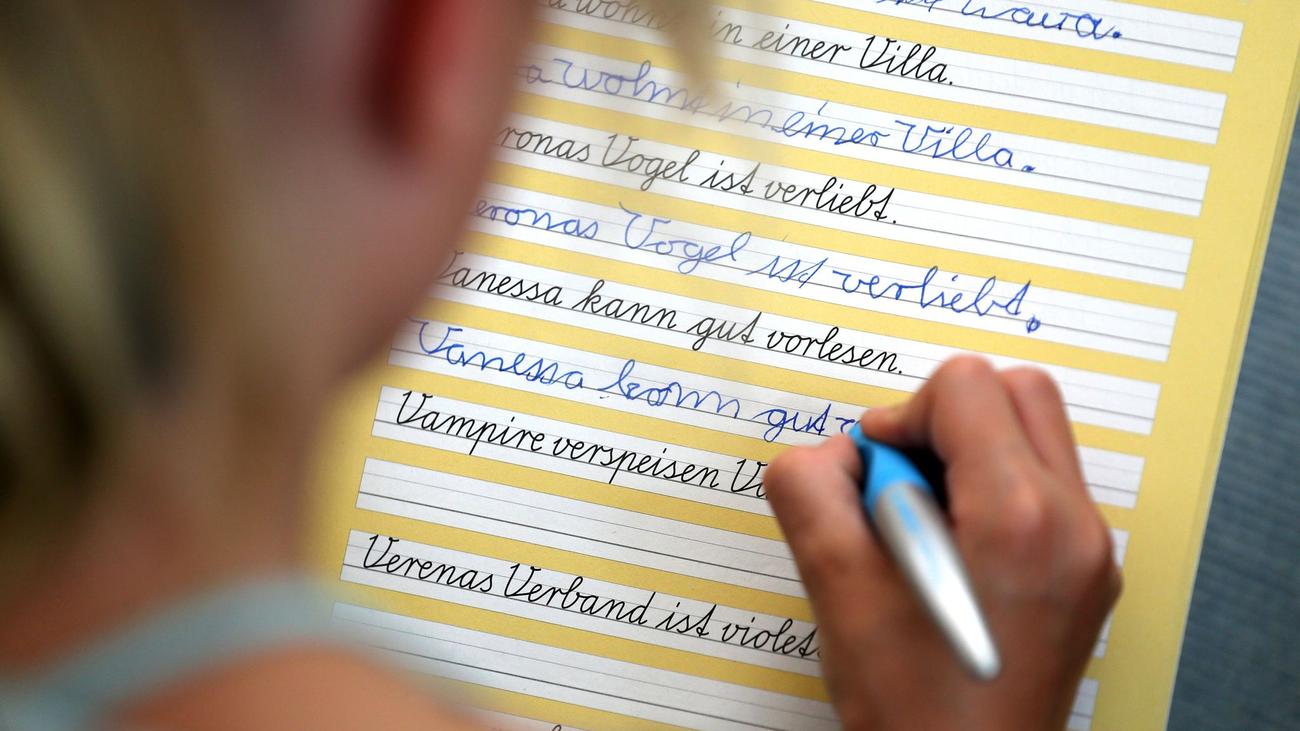 in einer Villa.
wohnt in einer Villa.
ronas Vogel ist verliebt.
eronas Vogel ist verliebt.
Vanessa kann gut vorlesen.
Vanessa kann gut v
Vampire verspeisen
Verenas Verband ist violett